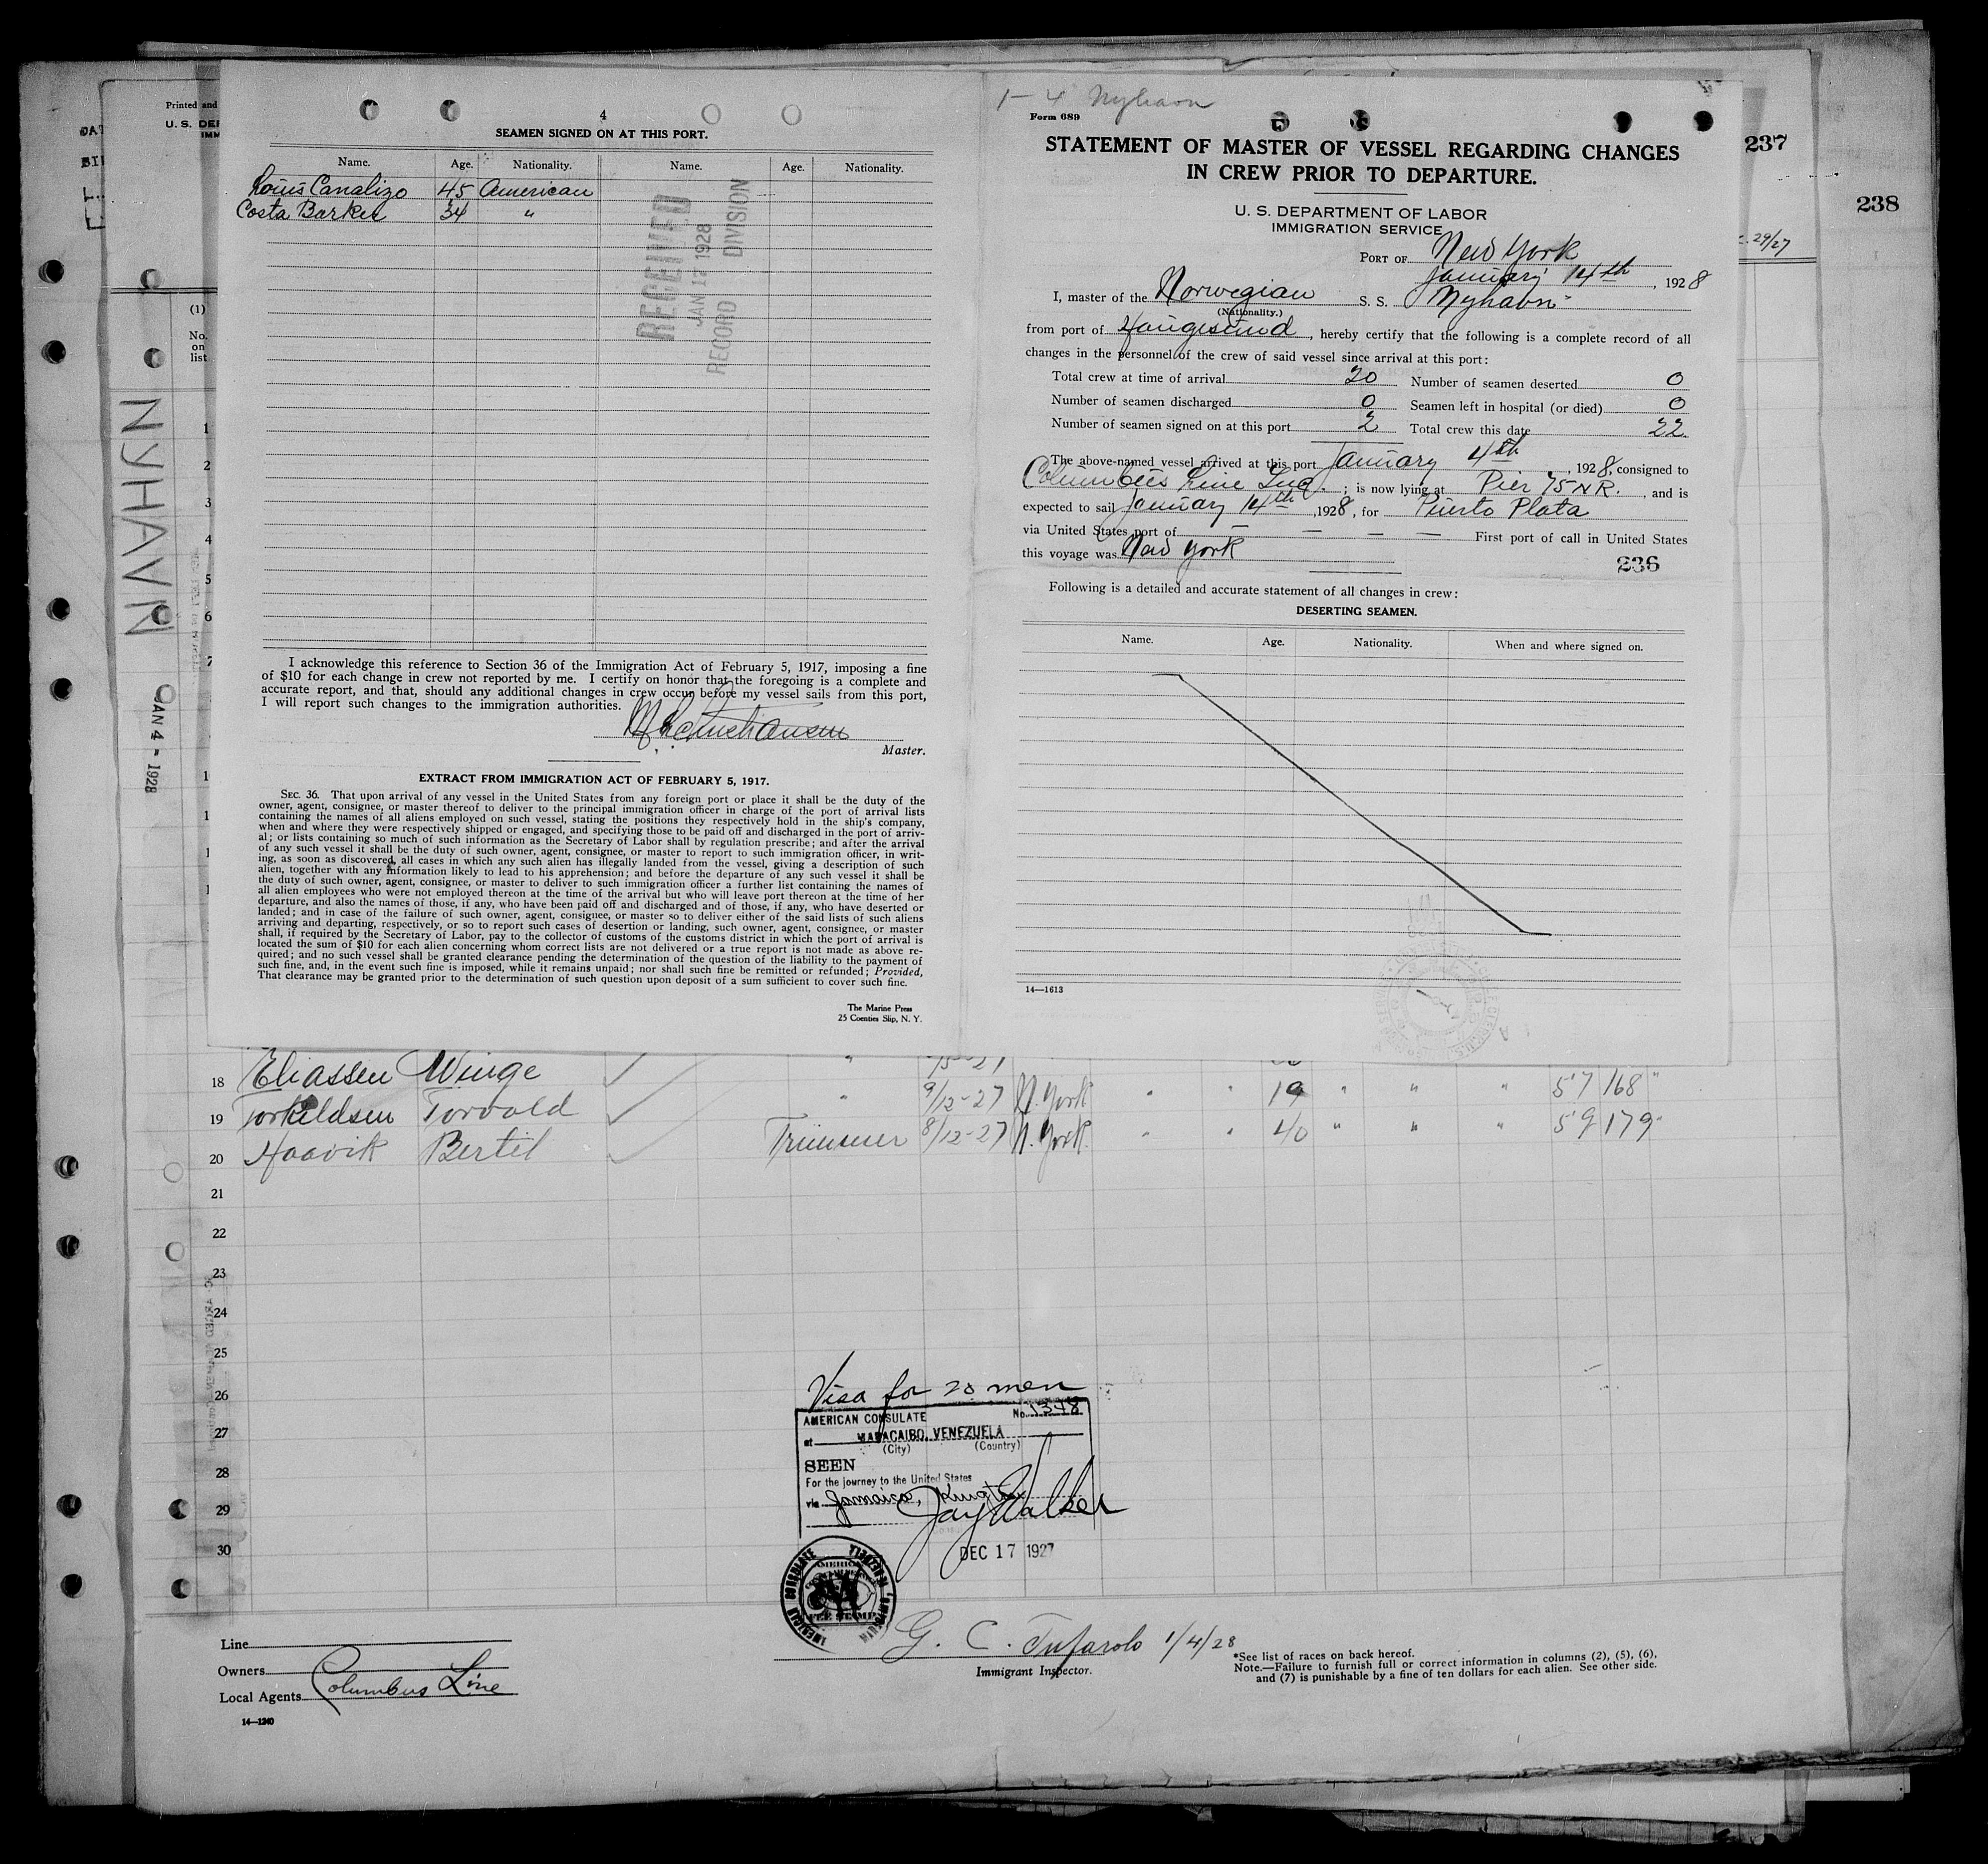 Printed and
U. S. DE
IMM
(1)
No.
on
list
NYHAVN
JAN 4 - 1928
4
SEAMEN SIGNED ON AT THIS PORT.
Name. Age. Nationality. Name. Age. Nationality.
Louis Canalizo 45 American
Costa Barker 34 "
RECEIVED
JAN 12 1928
RECORD DIVISION
I acknowledge this reference to Section 36 of the Immigration Act of February 5, 1917, imposing a fine
of $10 for each change in crew not reported by me. I certify on honor that the foregoing is a complete and
accurate report, and that, should any additional changes in crew occur before my vessel sails from this port,
I will report such changes to the immigration authorities.
Master.
EXTRACT FROM IMMIGRATION ACT OF FEBRUARY 5, 1917.
SEC. 36. That upon arrival of any vessel in the United States from any foreign port or place it shall be the duty of the
owner, agent, consignee, or master thereof to deliver to the principal immigration officer in charge of the port of arrival lists
containing the names of all aliens employed on such vessel, stating the positions they respectively hold in the ship's company,
when and where they were respectively shipped or engaged, and specifying those to be paid off and discharged in the port of arriv-
al; or lists containing so much of such information as the Secretary of Labor shall by regulation prescribe; and after the arrival
of any such vessel it shall be the duty of such owner, agent, consignee, or master to report to such immigration officer, in writ-
ing, as soon as discovered, all cases in which any such alien has illegally landed from the vessel, giving a description of such
alien, together with any information likely to lead to his apprehension; and before the departure of any such vessel it shall be
the duty of such owner, agent, consignee, or master to deliver to such immigration officer a further list containing the names of
all alien employees who were not employed thereon at the time of the arrival but who will leave port thereon at the time of her
departure, and also the names of those, if any, who have been paid off and discharged and of those, if any, who have deserted or
landed; and in case of the failure of such owner, agent, consignee, or master so to deliver either of the said lists of such aliens
arriving and departing, respectively, or so to report such cases of desertion or landing, such owner, agent, consignee, or master
shall, if required by the Secretary of Labor, pay to the collector of customs of the customs district in which the port of arrival is
located the sum of $10 for each alien concerning whom correct lists are not delivered or a true report is not made as above re-
quired; and no such vessel shall be granted clearance pending the determination of the question of the liability to the payment of
such fine, and, in the event such fine is imposed, while it remains unpaid; nor shall such fine be remitted or refunded; Provided,
That clearance may be granted prior to the determination of such question upon deposit of a sum sufficient to cover such fine.
The Marine Press
25 Coenties Slip, N. Y.
1-4 Nyhavn
Form 689
STATEMENT OF MASTER OF VESSEL REGARDING CHANGES
IN CREW PRIOR TO DEPARTURE.
U. S. DEPARTMENT OF LABOR
IMMIGRATION SERVICE
PORT OF New York
January 14th, 1928
I, master of the Norwegian S. S. Nyhavn
(Nationality.)
from port of Haugesund, hereby certify that the following is a complete record of all
changes in the personnel of the crew of said vessel since arrival at this port:
Total crew at time of arrival 20 Number of seamen deserted 0
Number of seamen discharged 0 Seamen left in hospital (or died) 0
Number of seamen signed on at this port 2 Total crew this date 22
The above-named vessel arrived at this port January 4th, 1928, consigned to
Columbus Line Inc.; is now lying at Pier 75 N R., and is
expected to sail January 14th, 1928, for Puerto Plata
via United States port of — — — — First port of call in United States
this voyage was New York
236
Following is a detailed and accurate statement of all changes in crew:
DESERTING SEAMEN.
Name. Age. Nationality. When and where signed on.
14—1613
237
238
29/27
1
2
3
4
5
6
7
18 Eliassen Winge " 9/12-27 N. York " " 19 " " " 5'7 168 "
19 Torkeldsen Torvald
20 Haavik Bertil Trimmer 8/12-27 N. York " " 40 " " " 5'9 179 "
21
22
23
24
25
26
27
28
29
30
Visa for 20 men
AMERICAN CONSULATE No. 1348
at MARACAIBO, VENEZUELA
(City) (Country)
SEEN
For the journey to the United States
via Jamaica, Kingston
Jay Walker
DEC 17 1927
AMERICAN CONSULATE
FEE STAMP
G. C. Tufarolo 1/4/28
Immigrant Inspector.
Line
Owners
Local Agents Columbus Line
14—1240
*See list of races on back hereof.
Note.—Failure to furnish full or correct information in columns (2), (5), (6),
and (7) is punishable by a fine of ten dollars for each alien. See other side.